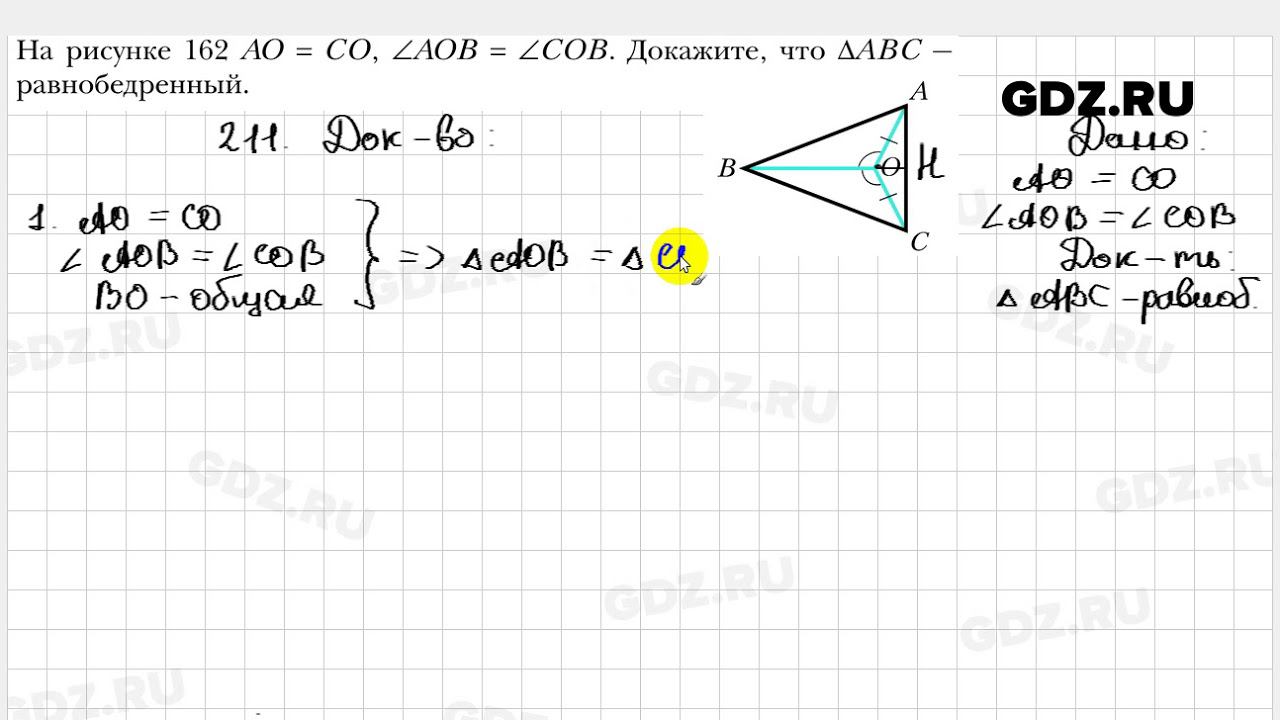 На рисунке 162 AO = CO, ∠AOB = ∠COB. Докажите, что ΔABC –
равнобедренный.
GDZ.RU
211. Док-во:
A
B
O
H
C
Дано:
AO = CO
∠AOB = ∠COB
Док-ть:
Δ ABC - равноб.
1. AO = CO
∠ AOB = ∠ COB
BO - общая
=> Δ AOB = Δ C
GDZ.RU
GDZ.RU
GDZ.RU
GDZ.RU
GDZ.RU
GDZ.RU
GDZ.RU
GDZ.RU
GDZ.RU
GDZ.RU